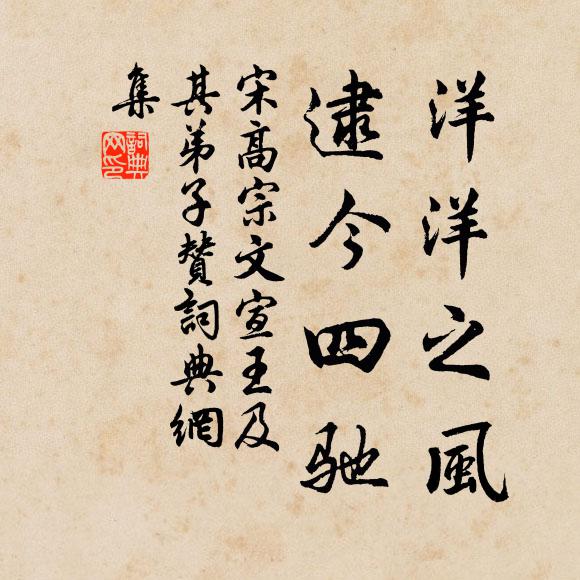 洋洋之風
逮今四馳
宋高宗文宣王及
其弟子贊詞典網
集
詞典
网印